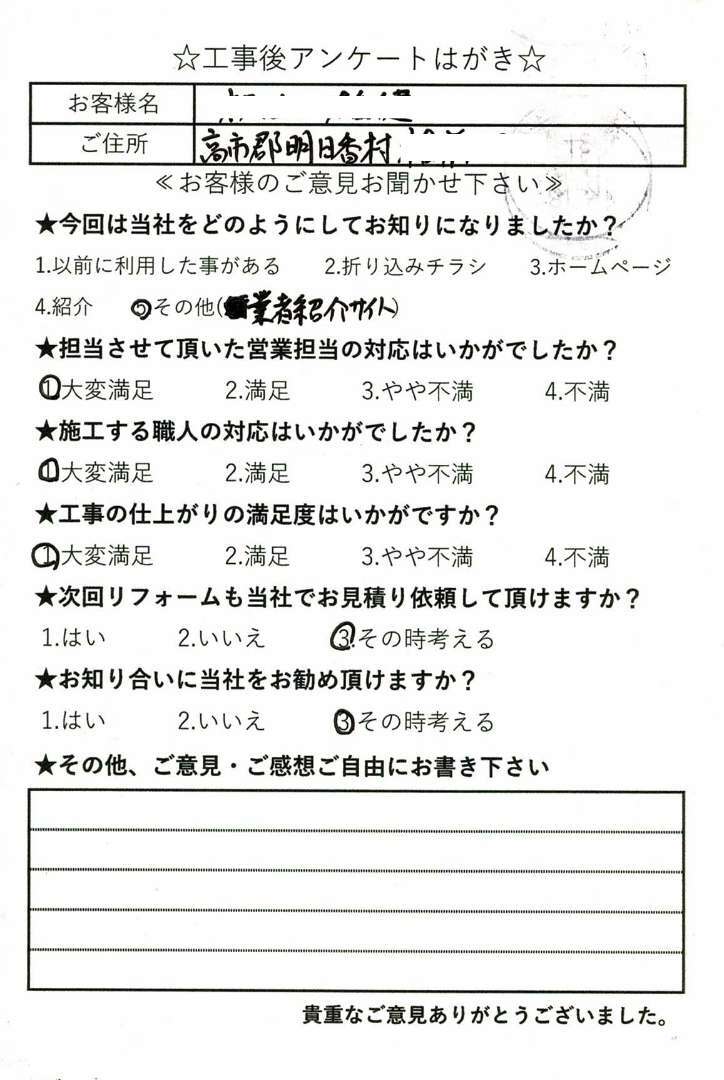 ☆工事後アンケートはがき☆
お客様名
ご住所 高市郡明日香村
≪お客様のご意見お聞かせ下さい≫
★今回は当社をどのようにしてお知りになりましたか？
1.以前に利用した事がある 2.折り込みチラシ 3.ホームページ
4.紹介 5.その他(業者紹介サイト)
★担当させて頂いた営業担当の対応はいかがでしたか？
1.大変満足 2.満足 3.やや不満 4.不満
★施工する職人の対応はいかがでしたか？
1.大変満足 2.満足 3.やや不満 4.不満
★工事の仕上がりの満足度はいかがですか？
1.大変満足 2.満足 3.やや不満 4.不満
★次回リフォームも当社でお見積り依頼して頂けますか？
1.はい 2.いいえ 3.その時考える
★お知り合いに当社をお勧め頂けますか？
1.はい 2.いいえ 3.その時考える
★その他、ご意見・ご感想ご自由にお書き下さい
貴重なご意見ありがとうございました。